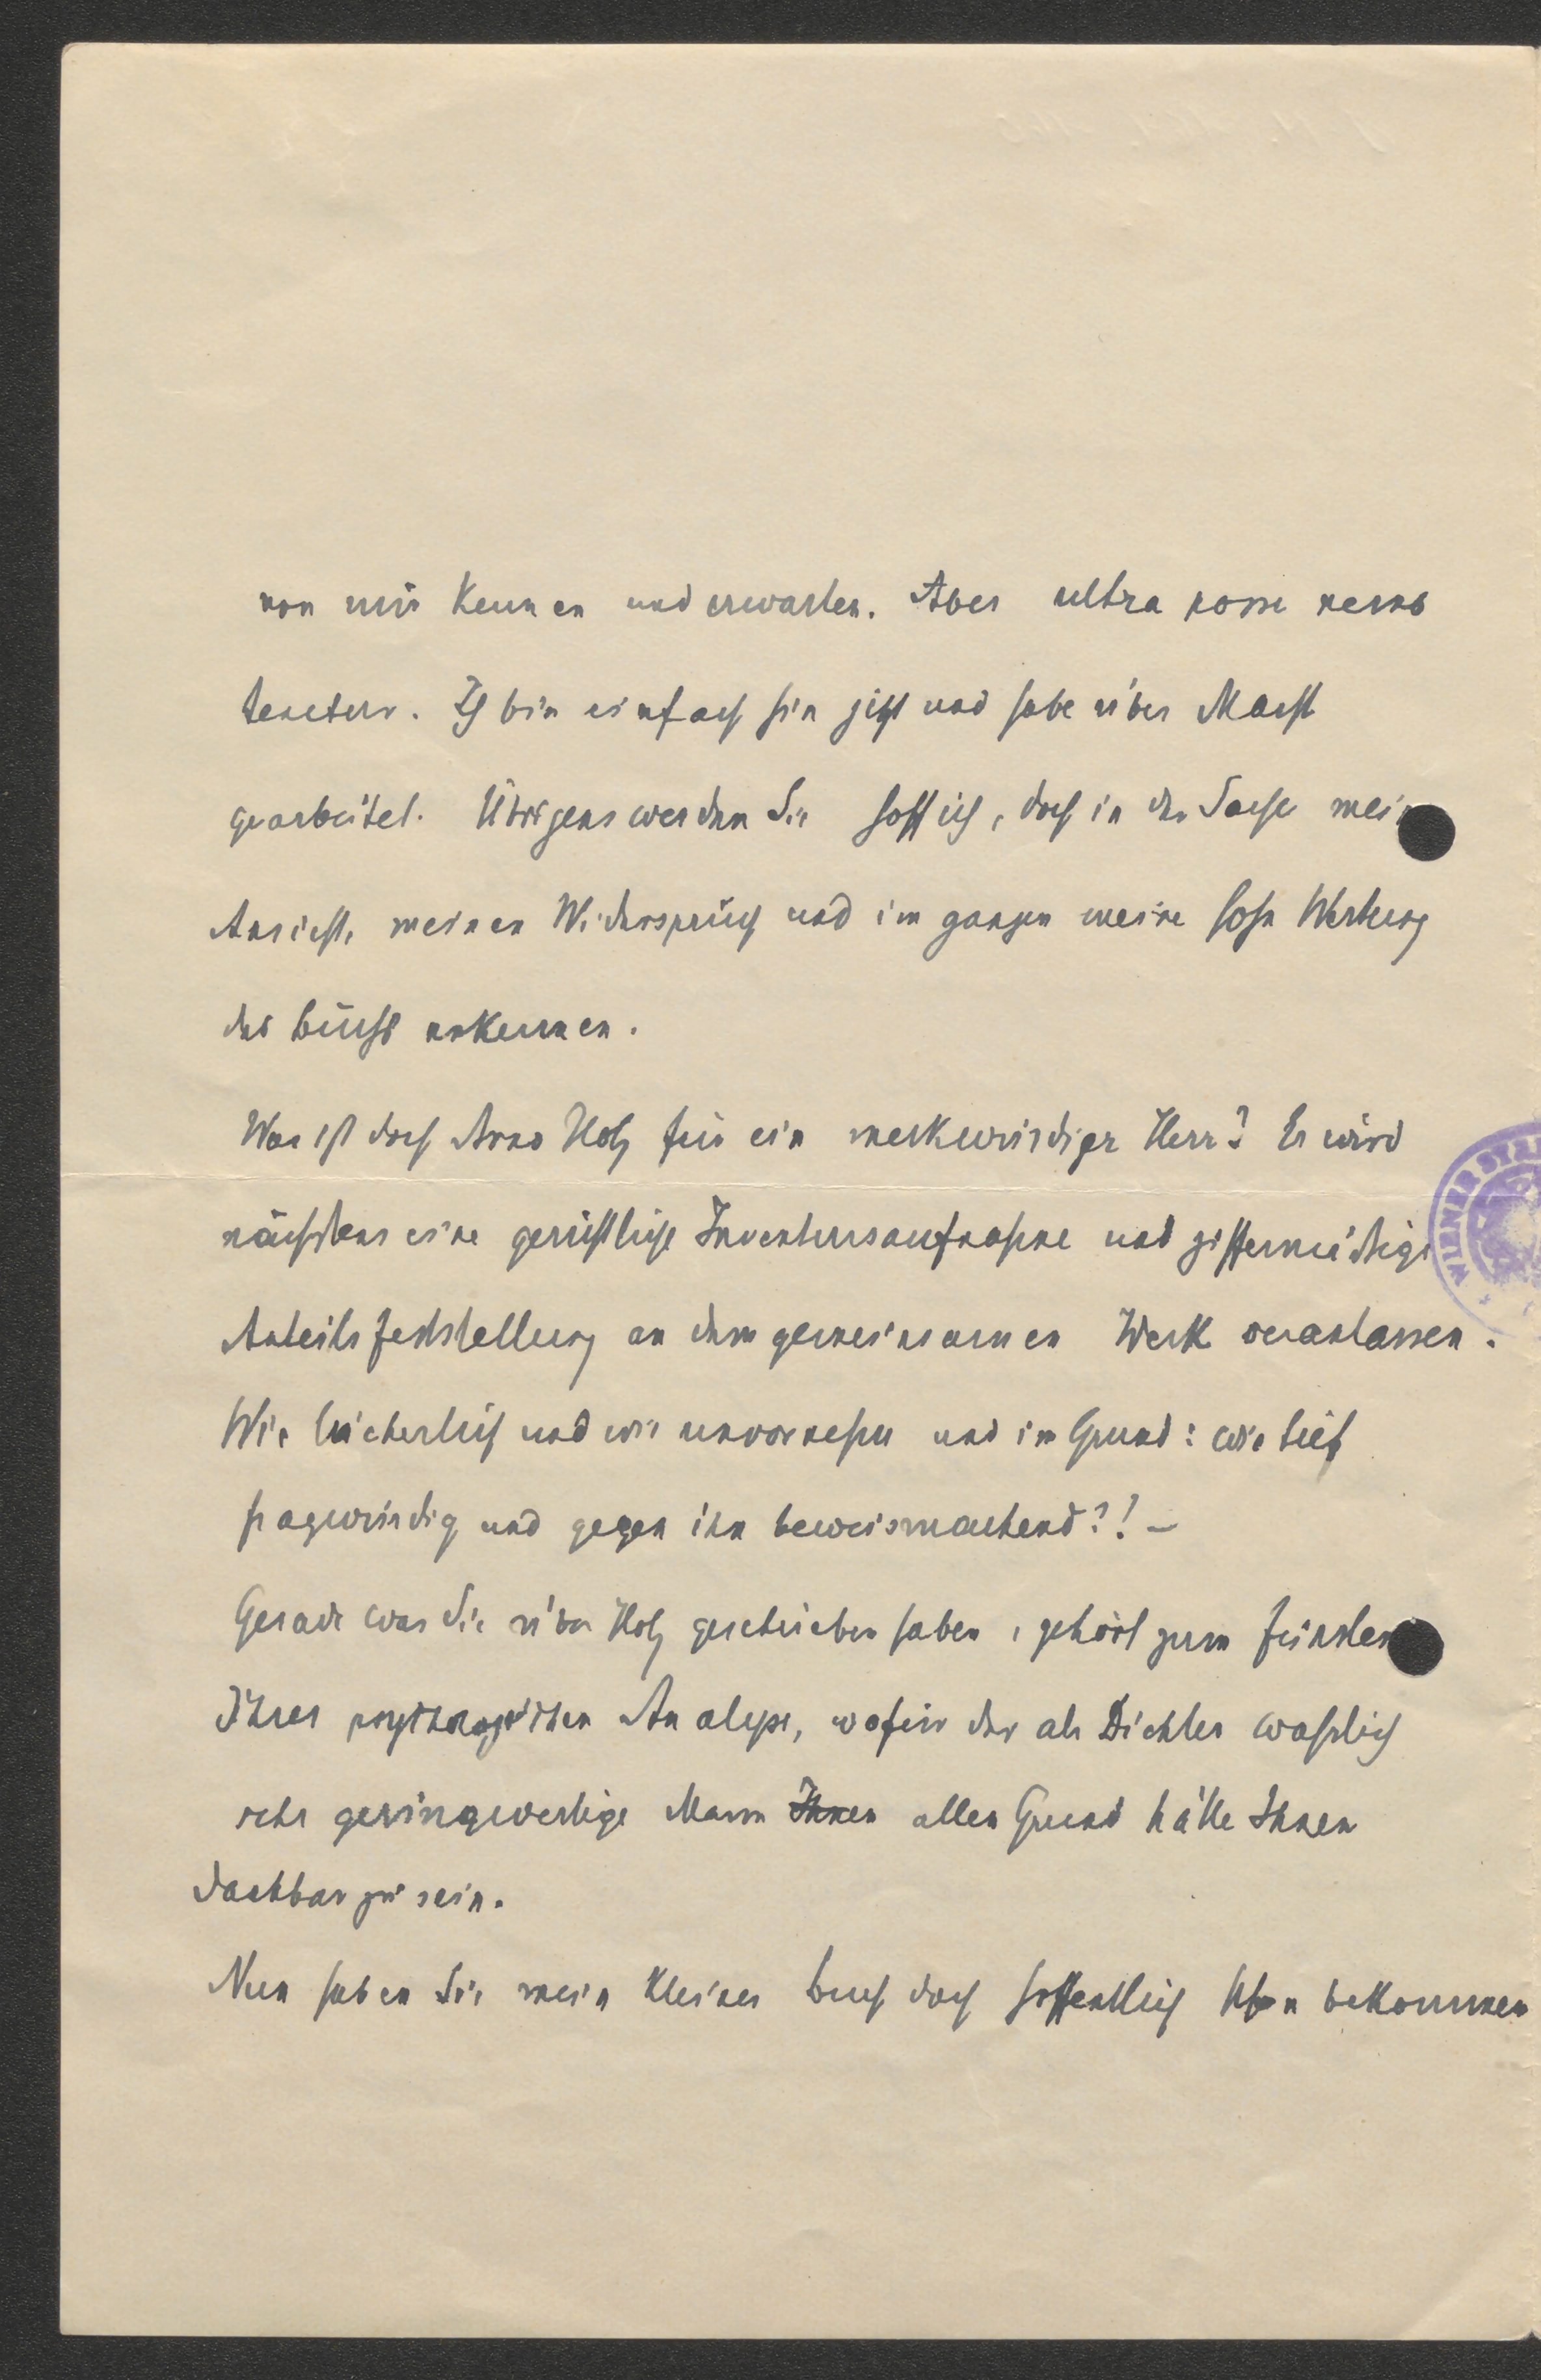 von mir kennen und erwarten. Aber ultra posse nemo
tenetur. Ich bin einfach hin jetzt und habe über Macht
gearbeitet. Übrigens werden Sie hoff ich, doch in der Sache mein
Ansicht, meinen Widerspruch und im ganzen meine hohe Wertung
des Buchs erkennen.
Was ist doch Arno Holz für ein merkwürdiger Herr? Er wird
nächstens eine gerichtliche Inventursaufnahme und ziffermäßige
Anteilsfeststellung an dem gemeinsamen Werk veranlassen.
Wie lächerlich und wie unvornehm und im Grund: wie tief
fragwürdig und gegen ihn beweismachend?! –
Gerade was Sie über Holz geschrieben haben, gehört zum feinsten
Ihrer psychologischen Analyse, wofür der als Dichter wahrlich
sehr geringwertige Mann Ihnen allen Grund hätte Ihnen
dankbar zu sein.
Nun haben Sie mein kleines Buch doch hoffentlich schon bekommen
WIENER